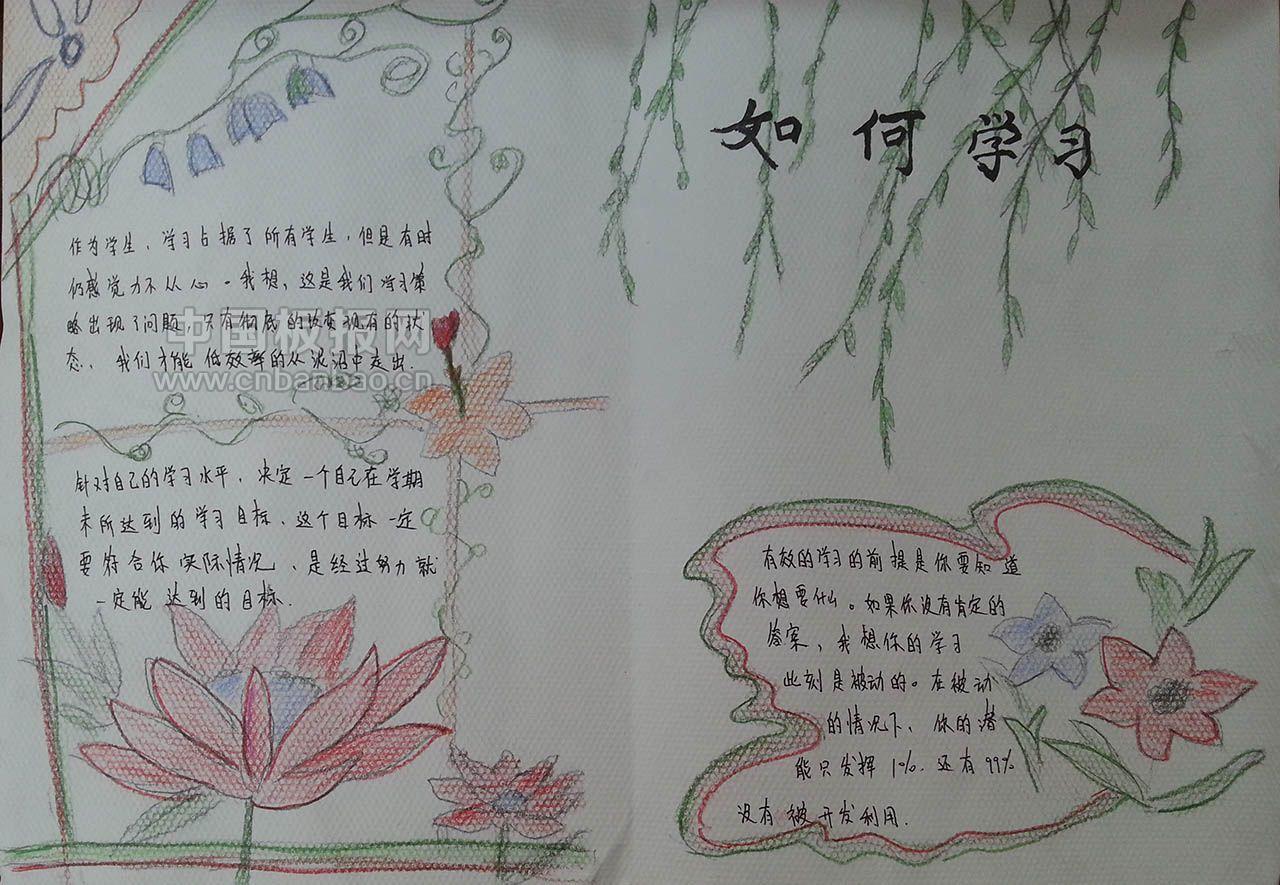 如何学习
作为学生、学习占据了所有学生，但是有时
仍感觉力不从心。我想，这是我们学习策
略出现了问题，只有彻底的改变现有的状
态、我们才能低效率的从泥沼中走出.
针对自己的学习水平，决定一个自己在学期
末所达到的学习目标、这个目标一定
要符合你实际情况、是经过努力就
一定能达到的目标.
有效的学习的前提是你要知道
你想要什么。如果你没有肯定的
答案，我想你的学习
此刻是被动的。在被动
的情况下、你的潜
能只发挥1%.还有99%
没有被开发利用.
中国板报网
www.cnbanbao.cn